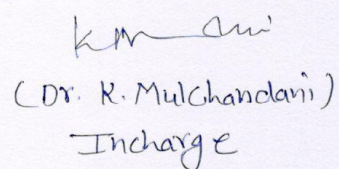 (Dr. K. Mulchandani)
Incharge